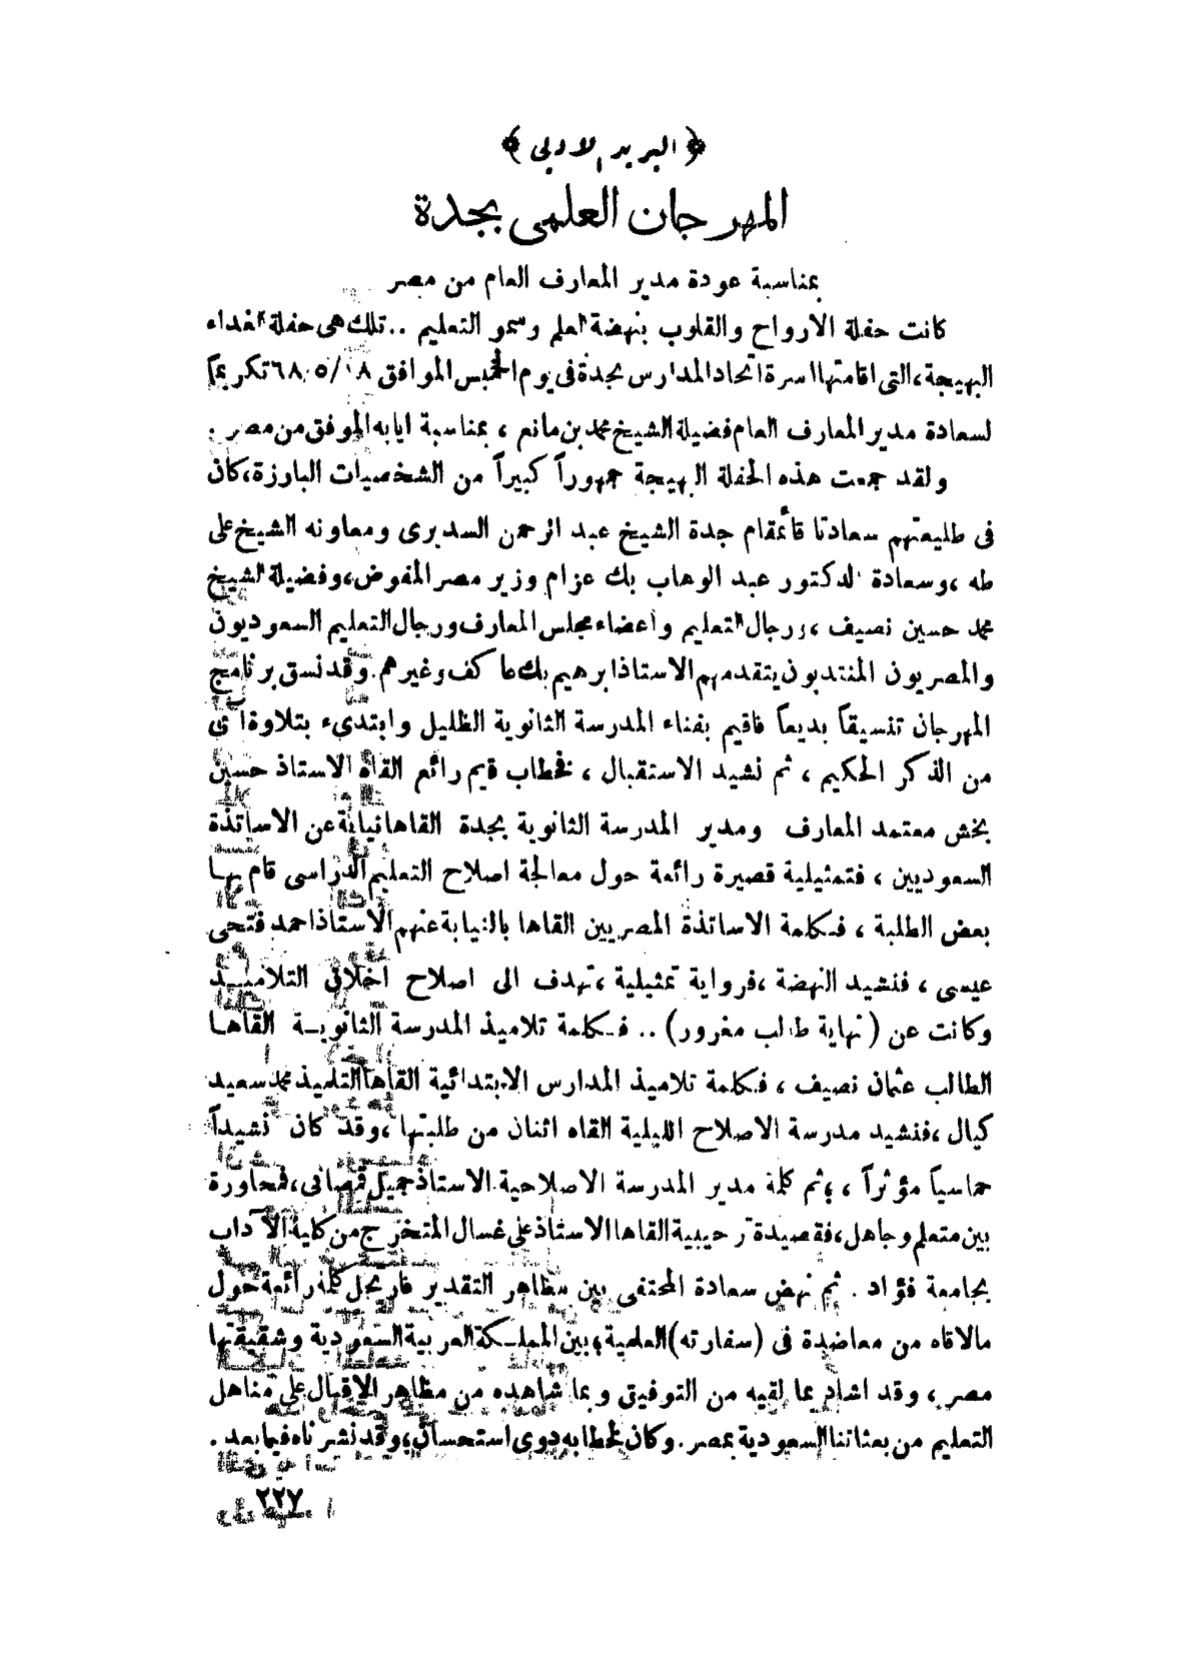 ﴿ البريد الادبي ﴾
المهرجان العلمى بجدة
بمناسبة عودة مدير المعارف العام من مصر
كانت حفلة الارواح والقلوب بنهضة العلم وسمو التعليم .. تلك هى حفلة الغداء
البهيجة، التى اقامتها اسرة اتحاد المدارس بجدة فى يوم الخميس الموافق تكريماً
لسعادة مدير المعارف العام فضيلة الشيخ محمد بن مانع ، بمناسبة ايابه الموفق من مصر .
ولقد جمعت هذه الحفلة البهيجة جمهوراً كبيراً من الشخصيات البارزة، كان
فى طليعتهم سعادتا قائمقام جدة الشيخ عبد الرحمن السديرى ومعاونه الشيخ على
طه ، وسعادة الدكتور عبد الوهاب بك عزام وزير مصر المفوض، وفضيلة الشيخ
محمد حسين نصيف ، ورجال التعليم وأعضاء مجلس المعارف ورجال التعليم السعوديون
والمصريون المنتدبون يتقدمهم الاستاذ ابرهيم بك عاكف وغيرهم . وقد نسق برنامج
المهرجان تنسيقاً بديعاً فاقيم بفناء المدرسة الثانوية الظليل وابتدىء بتلاوة آى
من الذكر الحكيم ، ثم نشيد الاستقبال ، فخطاب قيم رائع القاه الاستاذ حسين
بخش معتمد المعارف ومدير المدرسة الثانوية بجدة القاها نيابة عن الاساتذة
السعوديين ، فتمثيلية قصيرة رائعة حول معالجة اصلاح التعليم الدراسى قام بها
بعض الطلبة ، فكلمة الاساتذة المصريين القاها بالنيابة عنهم الاستاذ احمد فتحى
عيسى ، فنشيد النهضة ، فرواية تمثيلية ، تهدف الى اصلاح اخلاق التلاميذ
وكانت عن ( نهاية طالب مغرور ) .. فكلمة تلاميذ المدرسة الثانوية القاها
الطالب عثمان نصيف ، فكلمة تلاميذ المدارس الابتدائية القاها التلميذ محمد سعيد
كيال ، فنشيد مدرسة الاصلاح الليلية القاه اثنان من طلبتها ، وقد كان نشيداً
حماسياً مؤثراً ، ؛ ثم كلمة مدير المدرسة الاصلاحية الاستاذ جميل قمصانى، فمحاورة
بين متعلم وجاهل، فقصيدة ترحيبية القاها الاستاذ على غسال المتخرج من كلية الآداب
بجامعة فؤاد . ثم نهض سعادة المحتفى بين مظاهر التقدير فارتجل كلمة رائعة حول
مالاقاه من معاضدة فى ( سفارته ) العلمية ؛ بين المملكة العربية السعودية وشقيقتها
مصر ، وقد اشاد بما لقيه من التوفيق وبما شاهده من مظاهر الاقبال على مناهل
التعليم من بعثاتنا السعودية بمصر . وكان لخطابه دوى استحسان، وقد نشرناه فيما بعد .
٢٢٧